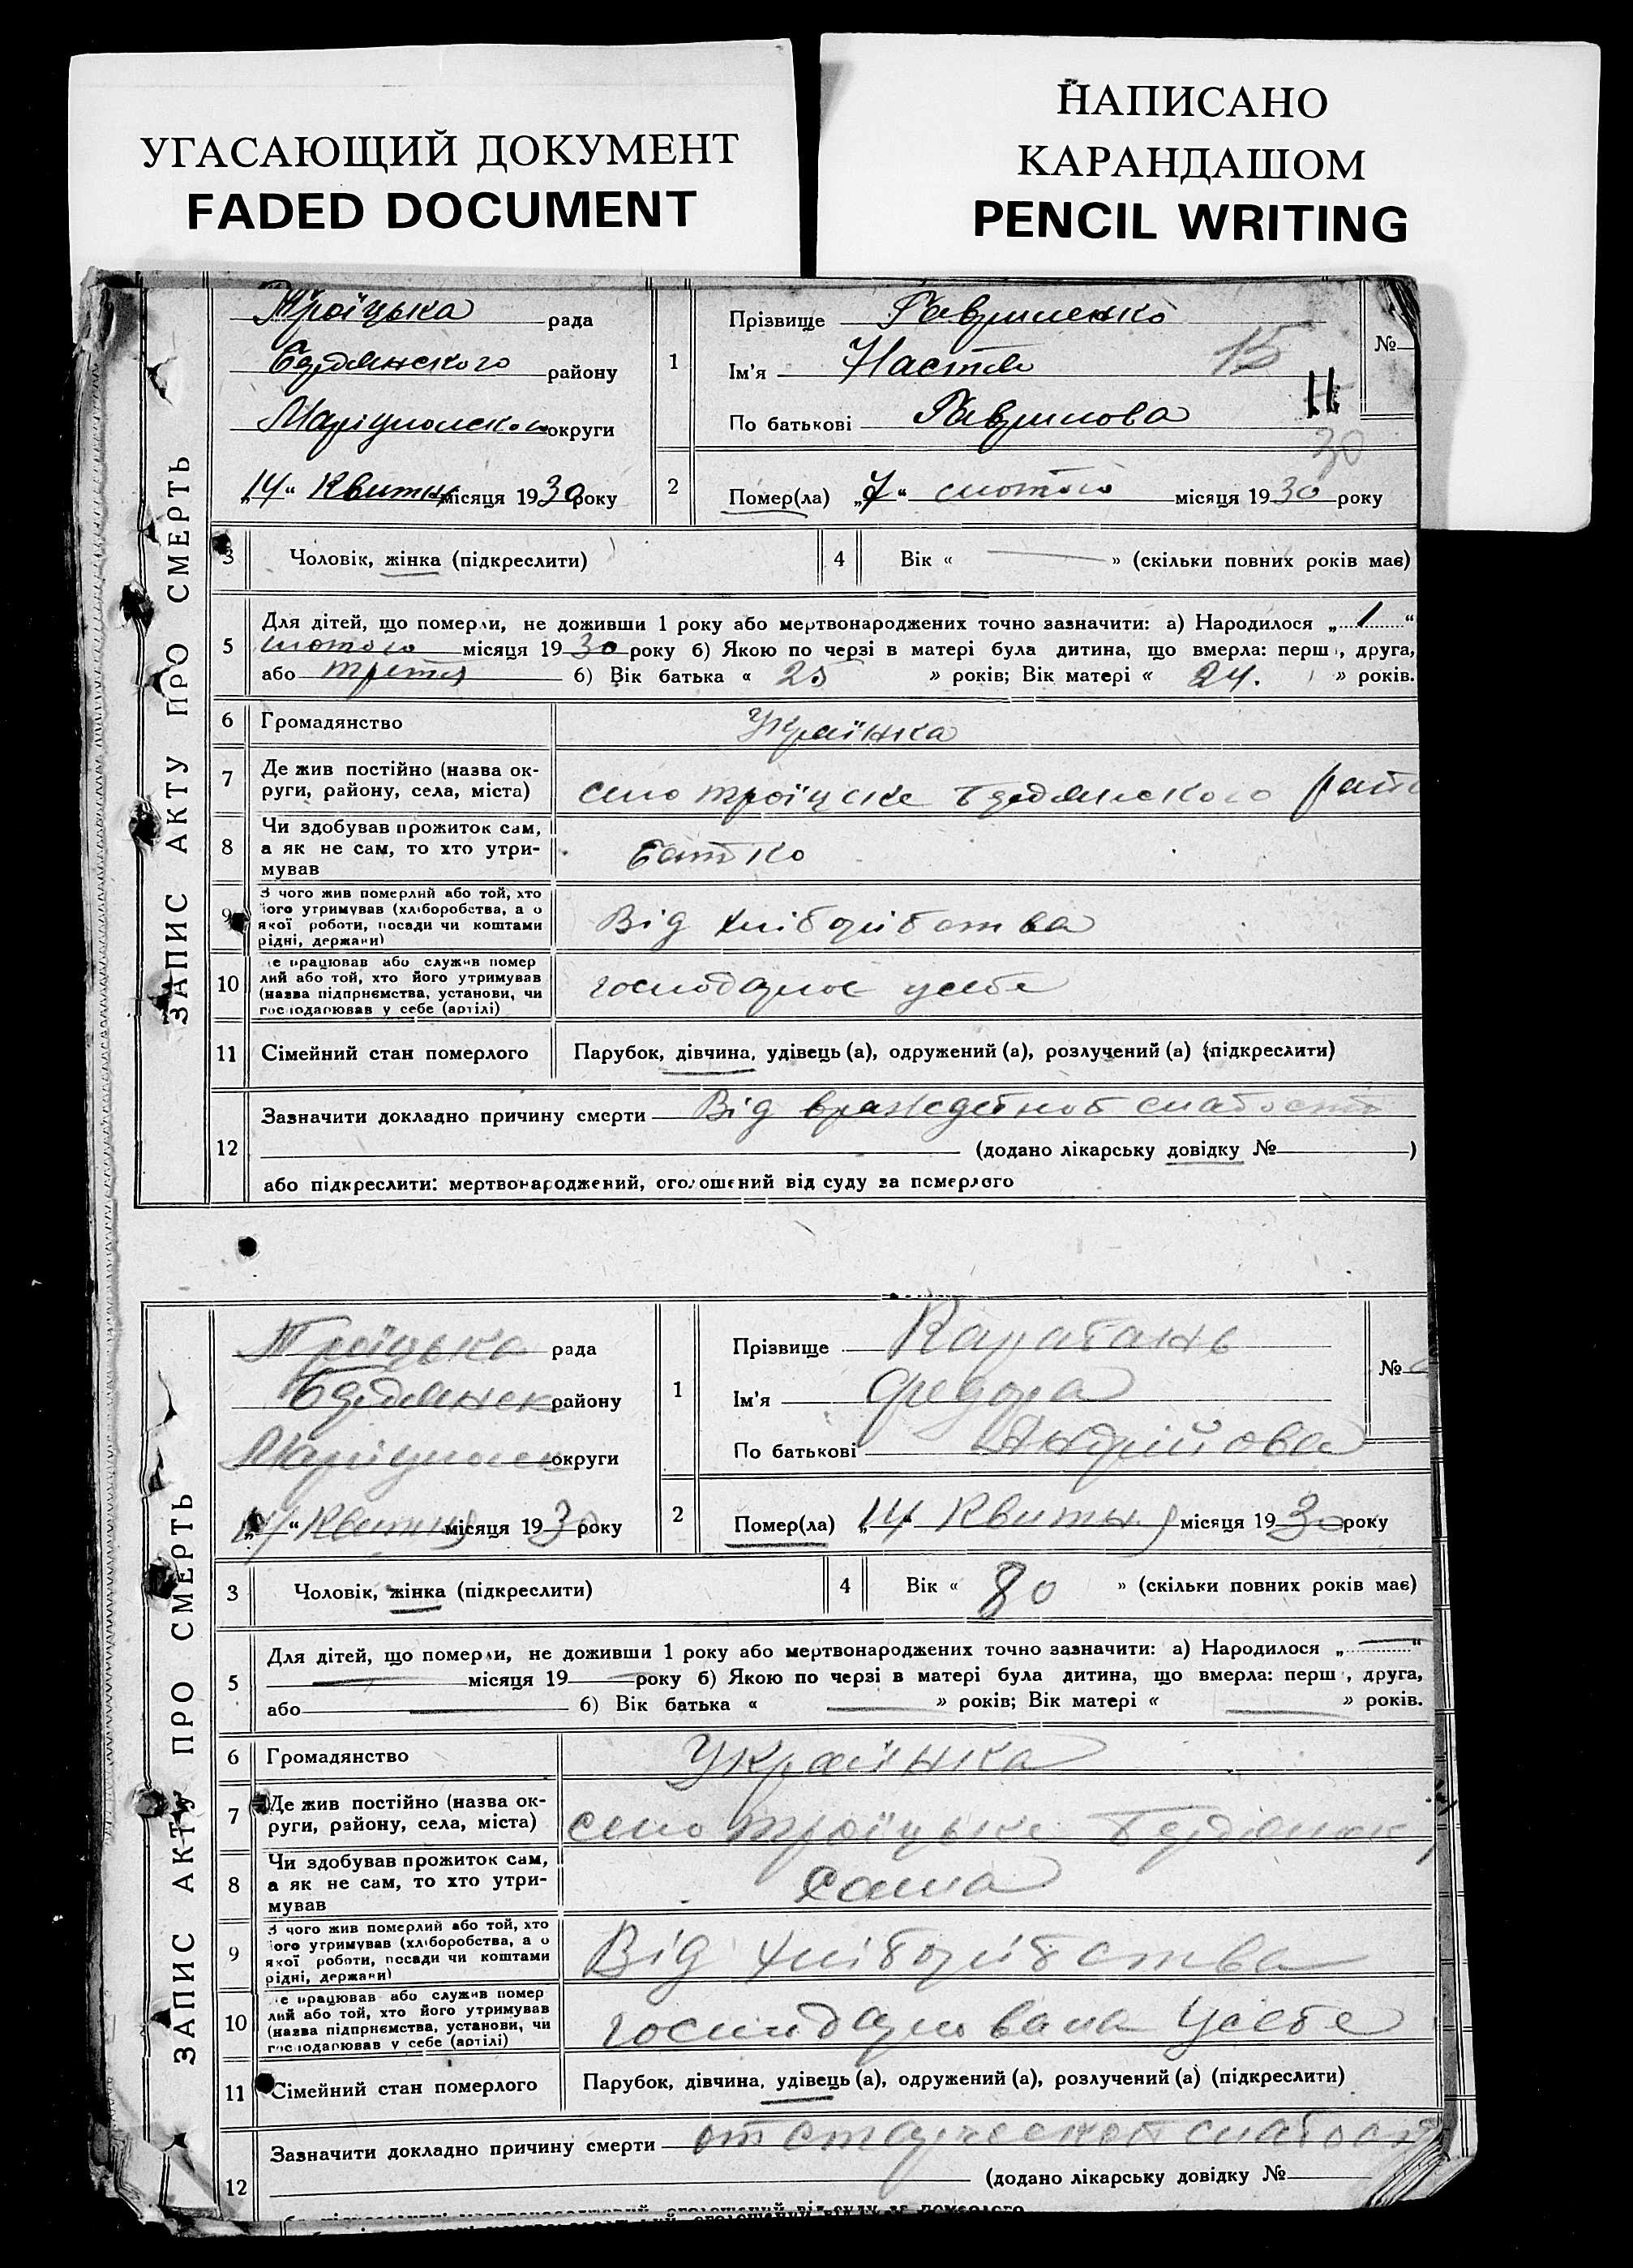 УГАСАЮЩИЙ ДОКУМЕНТ
FADED DOCUMENT
НАПИСАНО
КАРАНДАШОМ
PENCIL WRITING
ЗАПИС АКТУ ПРО СМЕРТЬ
Троїцька рада
району
округи
„14“ Квитня місяця 1930 року
1
Прізвище Гавриленко
Ім'я Настя
По батькові Гаврилова
15
11
30
№
2
Помер(ла) „7“ лютого місяця 1930 року
3 Чоловік, жінка (підкреслити)
4 Вік « — » (скільки повних років має)
5 Для дітей, що померли, не доживши 1 року або мертвонароджених точно зазначити: а) Народилося „1“
лютого місяця 1930 року б) Якою по черзі в матері була дитина, що вмерла: перш, друга,
або третя б) Вік батька « 25 » років; Вік матері « 24. » років.
6 Громадянство Українка
7 Де жив постійно (назва ок-
руги, району, села, міста) село троїцке
8 Чи здобував прожиток сам,
а як не сам, то хто утри-
мував
батько
9 З чого жив померлий або той, хто
його утримував (хліборобства, а о
якої роботи, посади чи коштами
рідні, держави)
Від хліборібства
10 е працював або служив помер
лий або той, хто його утримував
(назва підприємства, установи, чи
господарював у себе (артілі)
господарює усебе
11 Сімейний стан померлого Парубок, дівчина, удівець (а), одружений (а), розлучений (а) (підкреслити)
12 Зазначити докладно причину смерти Від слабости
(додано лікарську довідку № )
або підкреслити: мертвонароджений, оголошений від суду за померлого
ЗАПИС АКТУ ПРО СМЕРТЬ
Троїцька рада
району
округи
„14“ Квитня місяця 1930 року
1
Прізвище Карабань
Ім'я Федора
По батькові Андрійова
№
2
Помер(ла) „14“ Квитня місяця 1930 року
3 Чоловік, жінка (підкреслити)
4 Вік « 80 » (скільки повних років має)
5 Для дітей, що померли, не доживши 1 року або мертвонароджених точно зазначити: а) Народилося „—“
— місяця 19— року б) Якою по черзі в матері була дитина, що вмерла: перш, друга,
або — б) Вік батька « — » років; Вік матері « — » років.
6 Громадянство Українка
7 Де жив постійно (назва ок-
руги, району, села, міста) село троїцьке
8 Чи здобував прожиток сам,
а як не сам, то хто утри-
мував
сама
9 З чого жив померлий або той, хто
його утримував (хліборобства, а о
якої роботи, посади чи коштами
рідні, держави)
Від хліборібства
10 е працював або служив помер
лий або той, хто його утримував
(назва підприємства, установи, чи
господарював у себе (артілі)
господарювала усебе
11 Сімейний стан померлого Парубок, дівчина, удівець (а), одружений (а), розлучений (а) (підкреслити)
12 Зазначити докладно причину смерти от старческой
(додано лікарську довідку №
оголошений від суду за померлого